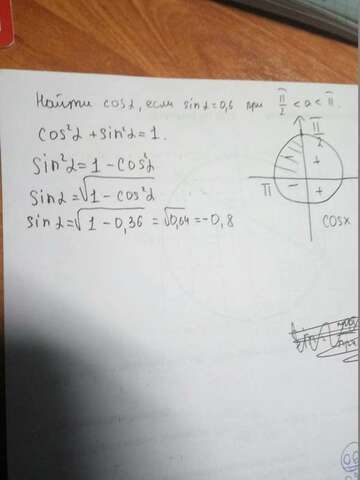 Найти cosα, если sinα=0,6 при π/2 < α < π.
cos²α + sin²α = 1.
sin²α = 1 - cos²α
sinα = √1 - cos²α
sinα = √1 - 0,36 = √0,64 = -0,8
π/2
+
π - +
cosx